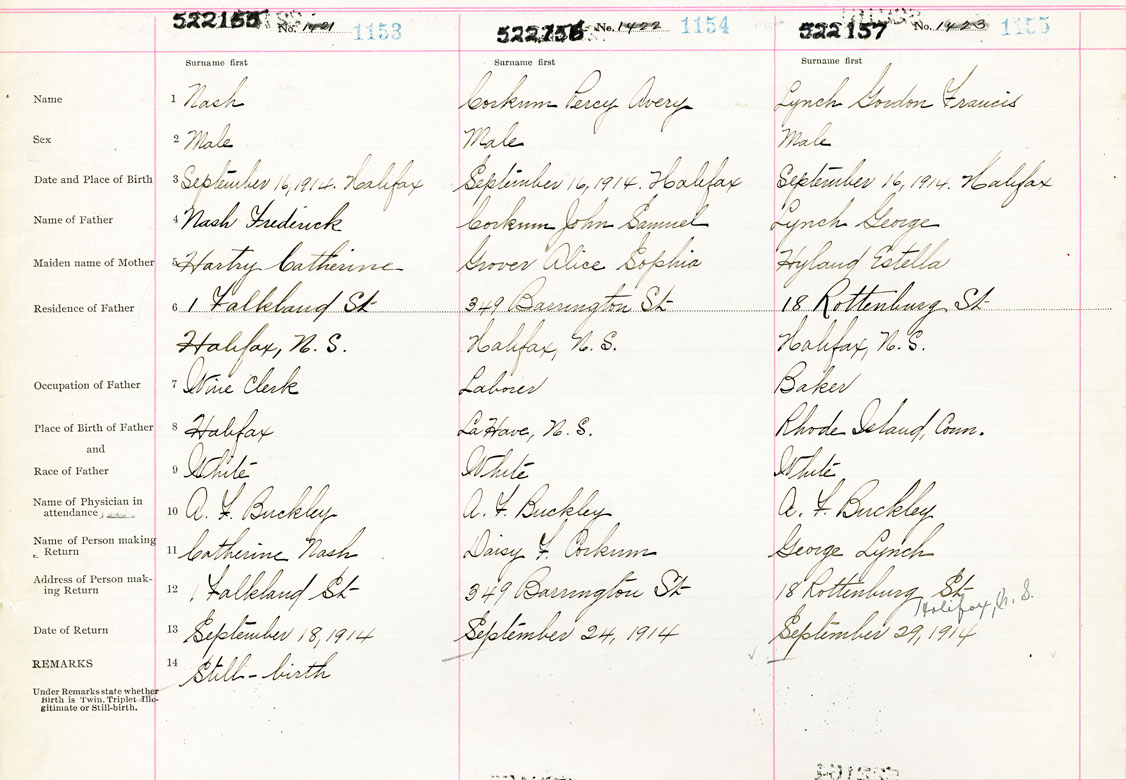 No. 1421 1153
522156 No. 1422 1154
522157 No. 1423 1155
Surname first Surname first Surname first
Name 1 Nash Corkum Percy Avery Lynch Gordon Francis
Sex 2 Male Male Male
Date and Place of Birth 3 September 16, 1914. Halifax September 16, 1914. Halifax September 16, 1914. Halifax
Name of Father 4 Nash Frederick Corkum John Samuel Lynch George
Maiden name of Mother 5 Hartry Catherine Grover Alice Sophia Hyland Estella
Residence of Father 6 1 Falkland St 349 Barrington St 18 Rottenburg St
Halifax, N. S. Halifax, N. S. Halifax, N. S.
Occupation of Father 7 Wine Clerk Laborer Baker
Place of Birth of Father 8 Halifax LaHave, N. S. Rhode Island, Conn.
and
Race of Father 9 White White White
Name of Physician in
attendance 10 A. F. Buckley A. F. Buckley A. F. Buckley
Name of Person making
Return 11 Catherine Nash Daisy F. Corkum George Lynch
Address of Person mak-
ing Return 12 1 Falkland St 349 Barrington St 18 Rottenburg St
Halifax, N. S.
Date of Return 13 September 18, 1914 September 24, 1914 September 29, 1914
REMARKS 14 Still-birth
Under Remarks state whether
Birth is Twin, Triplet Ille-
gitimate or Still-birth.